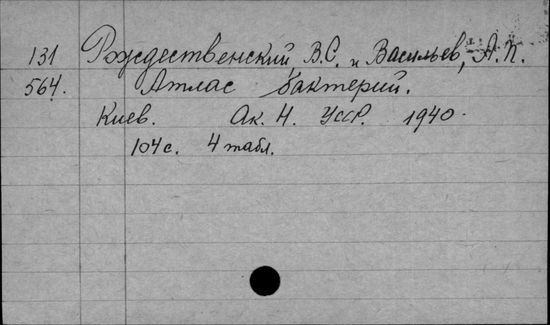 131 Рождественский В.С. и Васильев, А.П.
564. Атлас бактерий.
Киев. Ак. Н. УССР. 1940.
104 с. 4 табл.